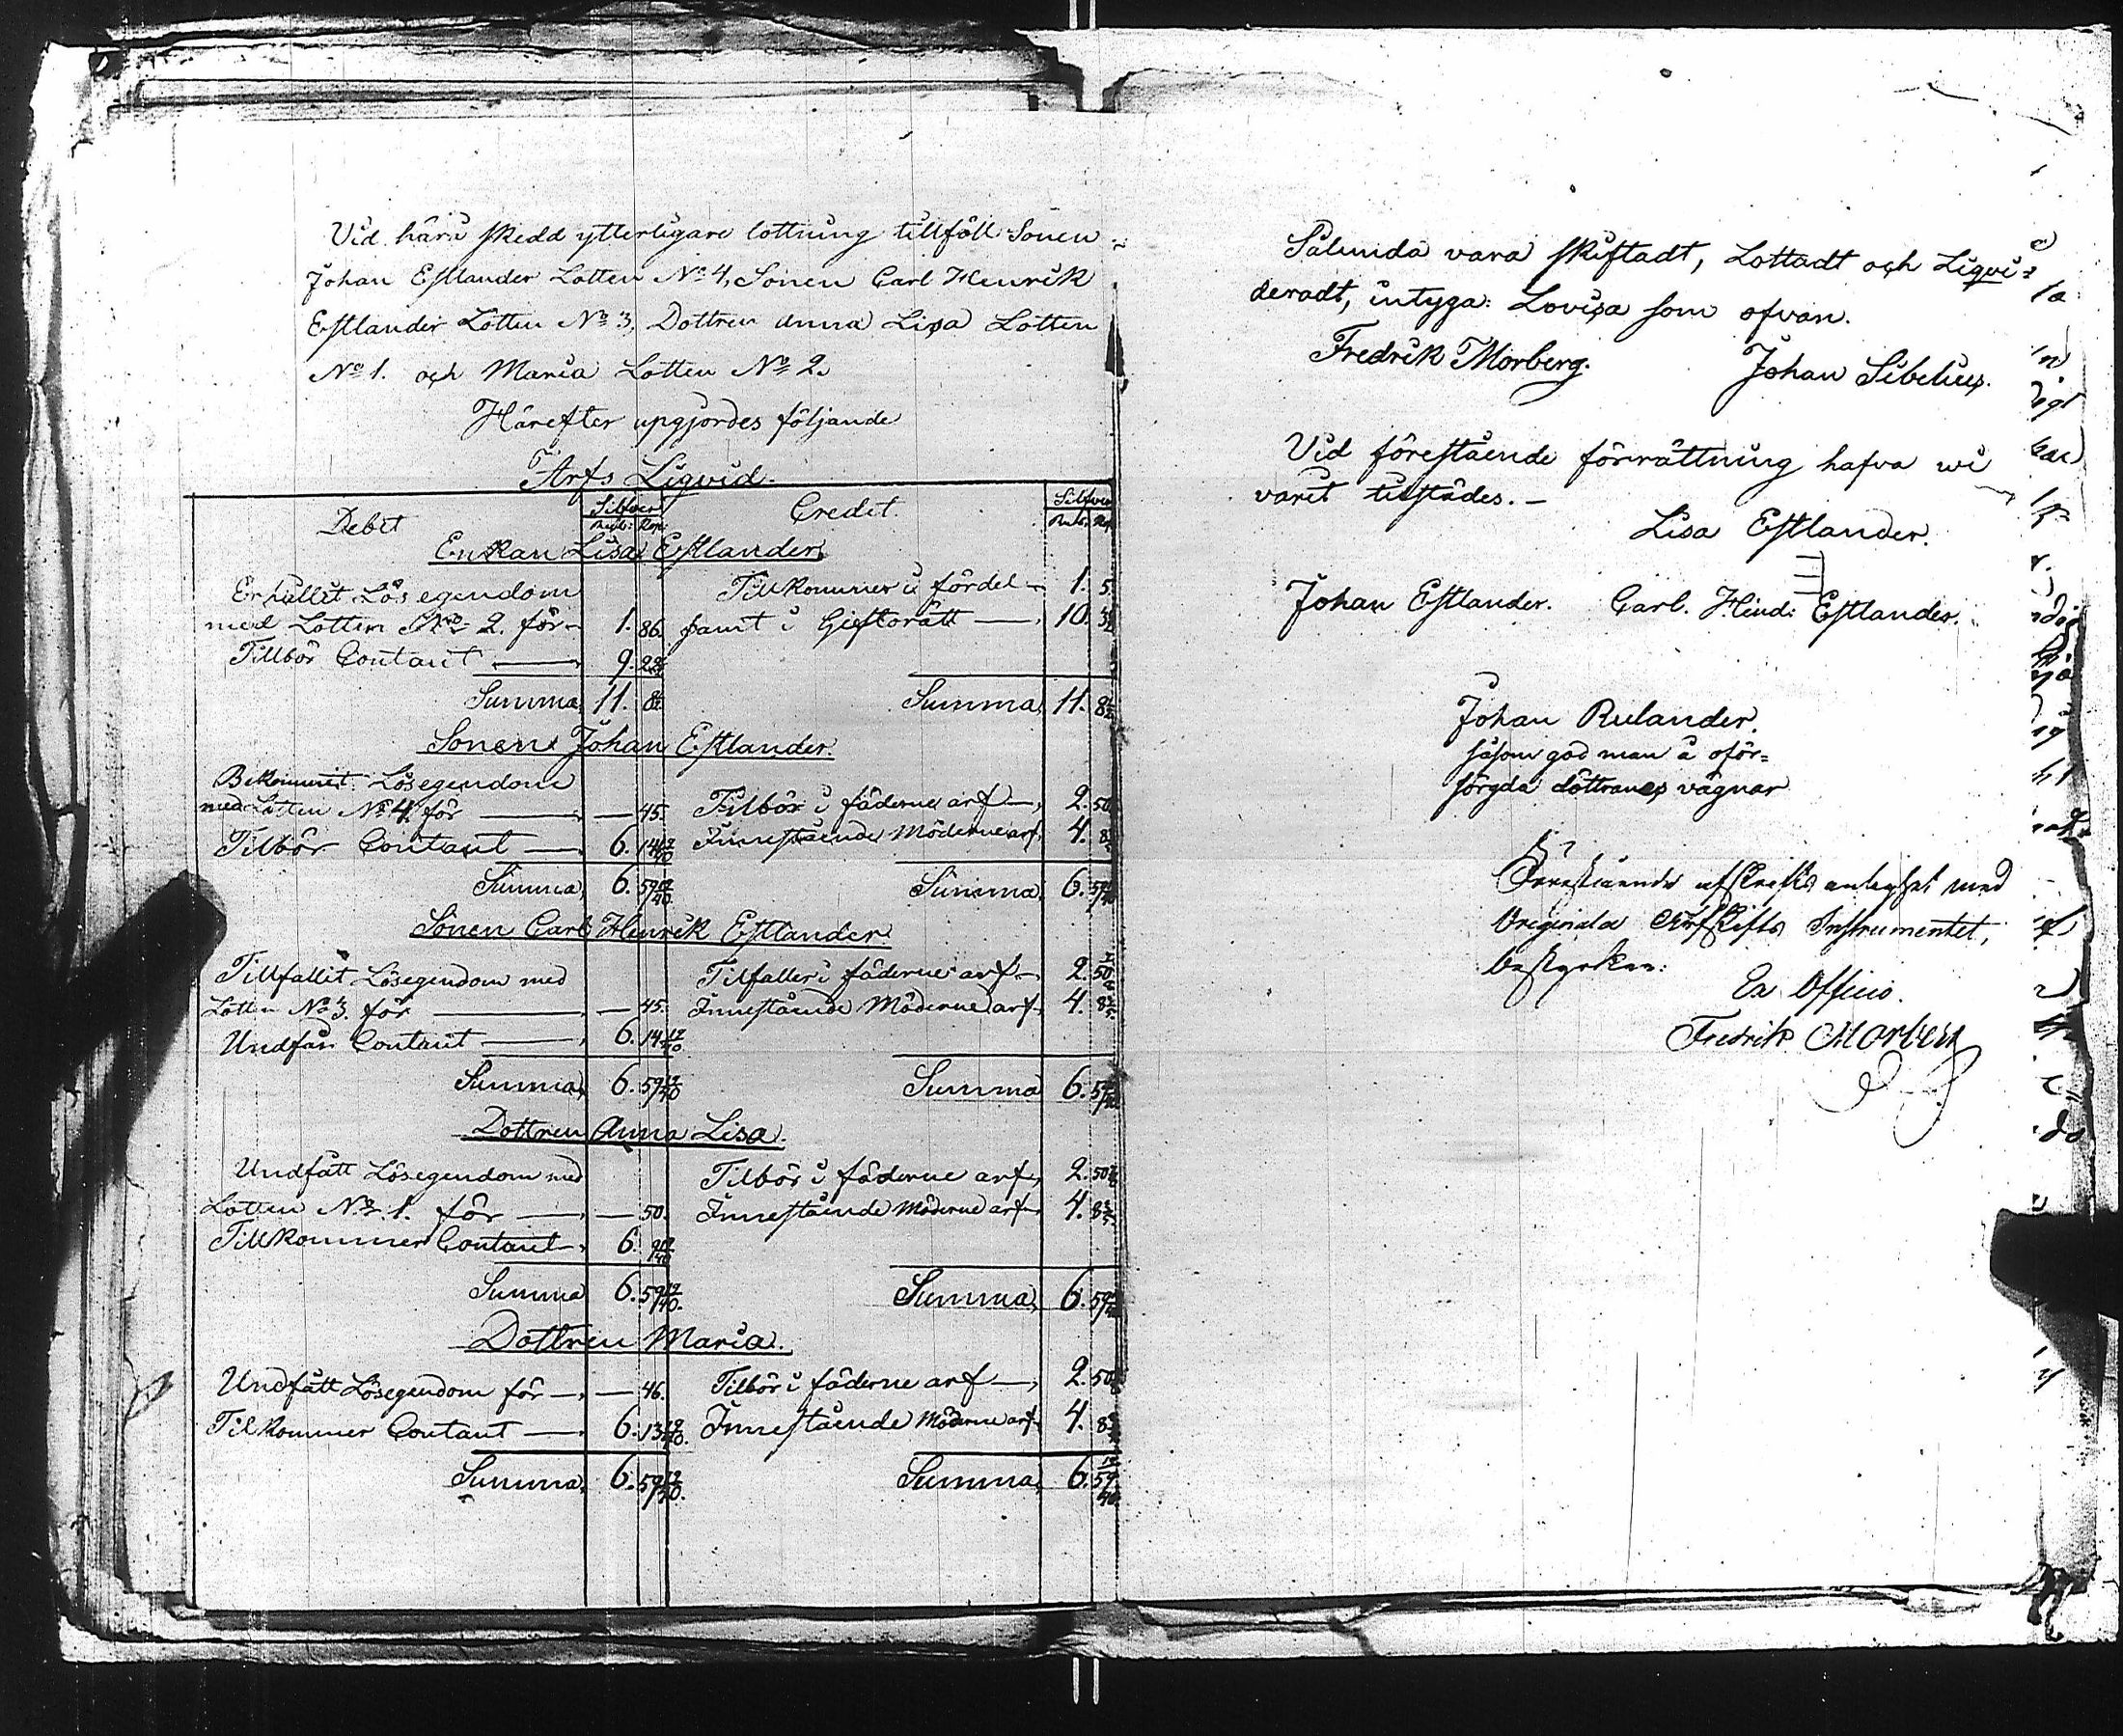 Vid häri skedd ytterligare lottning tillföll Sonen
Johan Estlander Lotten No 4, Sonen Carl Henrik
Estlander Lotten No 3, Dottren Anna Lisa Lotten
No 1. och Maria Lotten No 2.
Härefter upgjordes följande
Arfs Liqvid.
Debet Silfver Credit. Silfver
Rub: Kop: Rub. Kop
Enkan Lisa Estlander
Erhållit Lösegendom Tillkommer i fördel 1. 5.
med Lotten No 2. för 1. 86. samt i Giftorätt 10.
Tillbör Contant 9.
Summa 11. Summa 11.
Sonen Johan Estlander.
Bekommit Lösegendom
med Lotten No 4. för — 45. Tilbör i fäderne arf 2. 50
Tilbör Contant 6. 14 19/40 Innestående Möderne arf 4.
Summa 6. 59 19/40. Summa 6. 59
Sonen Carl Henrik Estlander
Tillfallit Lösegendom med Tilfaller i fäderne arf 2. 50
Lotten No 3. för — 45. Innestående Möderne arf 4.
Undfår Contant 6. 14 19/40
Summa 6. 59 19/40 Summa 6. 59
Dottren Anna Lisa.
Undfått Lösegendom med Tilbör i fäderne arf 2. 50
Lotten No 1. för — 50. Innestående Möderne arf 4.
Tillkommer Contant 6. 9 19/40
Summa 6. 59 19/40. Summa 6. 59
Dottren Maria.
Undfått Lösegendom för — 46. Tilbör i fäderne arf 2. 50
Tilkommer Contant 6. 13 19/40. Innestående Möderne arf 4.
Summa 6. 59 19/40. Summa 6. 59 19/40
Sålunda vara skiftadt, Lottadt och Liqvi=
deradt, intyga: Lovisa som ofvan.
Fredrik Morberg. Johan Sibelius.
Vid förestående förrättning hafva wi
varit tilstädes. —
Lisa Estlander.
Johan Estlander. Carl. Hind: Estlander.
Johan Rulander.
såsom god man å oför=
sörgda döttrarnes vägnar
Förestående afskrifts enlighet med
Originala Arfskifts Instrumentet,
bestyrker:
Ex Officio.
Fredrik Morberg